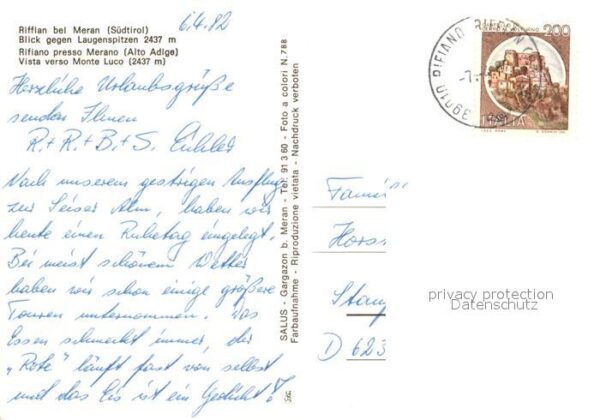 6.4.82
Riffian bei Meran (Südtirol)
Blick gegen Laugenspitzen 2437 m
Rifiano presso Merano (Alto Adige)
Vista verso Monte Luco (2437 m)
Herzliche Urlaubsgrüße
senden Ihnen
R.+R.+B+S.
Nach unserem gestrigen Ausflug
zur Seiser Alm, haben wir
heute einen Ruhetag eingelegt.
Bei meist schönem Wetter
haben wir schon einige größere
Touren unternommen. Das
Essen schmeckt immer, der
„Rote" läuft fast von selbst
und das Eis ist ein Gedicht!
SALUS - Gargazon b. Meran - Tel. 91 3 60 - Foto a colori N. 788
Farbaufnahme - Riproduzione vietata - Nachdruck verboten
39010 RIFIANO RIFFIAN
200
ITALIA
Fami
Hors
Stau
D 623
privacy protection
Datenschutz